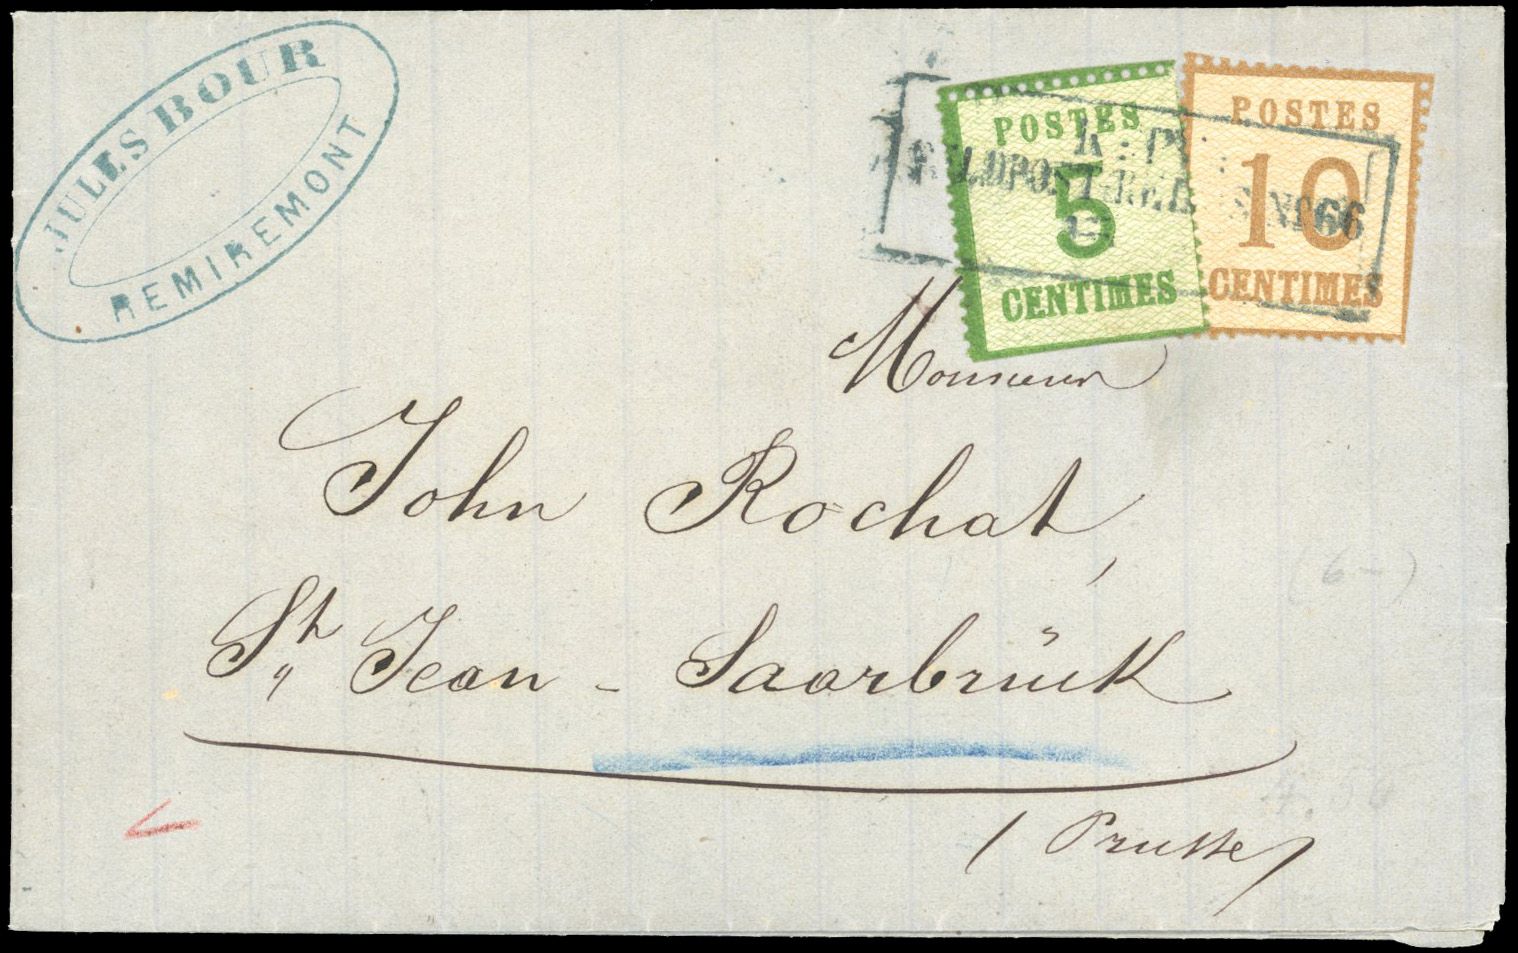 JULES BOUR
REMIREMONT
POSTES
5
CENTIMES
POSTES
10
CENTIMES
K: PR:
FELDPOST-RELAIS No 66
Monsieur
John Rochat,
St Jean - Saarbrück
(Prusse)
(6-)